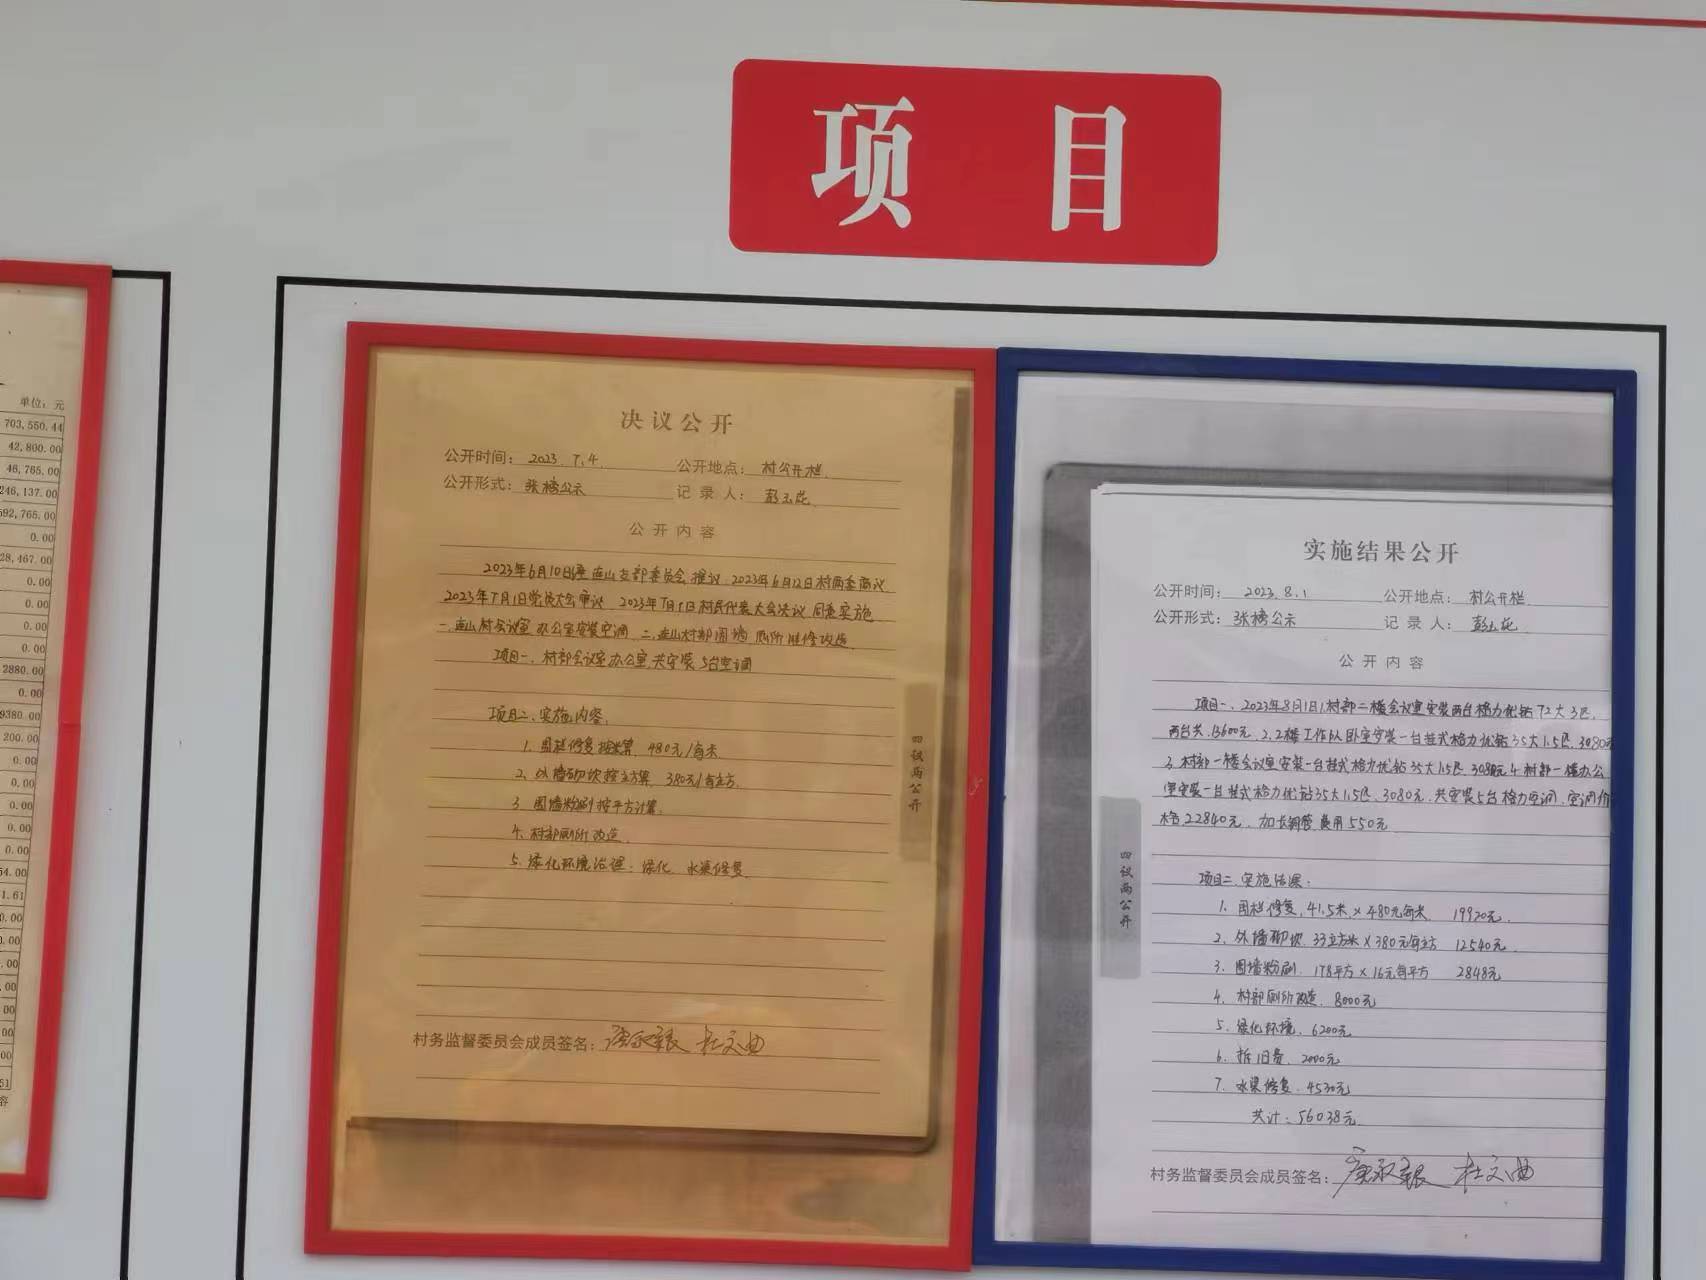 项 目
单位: 元
703,550.44
42,800.00
46,765.00
246,137.00
592,765.00
0.00
28,467.00
0.00
0.00
0.00
0.00
2880.00
0.00
9380.00
200.00
0.00
0.00
0.00
0.00
0.00
54.00
1.61
0.00
.00
.00
00
00
00
51
决议公开
公开时间: 2023.7.4 公开地点: 村公开栏
公开形式: 张榜公示 记录人: 彭玉花
公开内容
2023年6月10日 连山支部委员会提议 2023年6月12日村两委商议
2023年7月1日党员大会审议 2023年7月1日村民代表大会决议 同意实施
一.连山村会议室办公室安装空调 二.连山村部围墙 厕所维修改造
项目一、村部会议室办公室共安装5台空调
项目二、实施内容:
1. 围栏修复按米算 480元/每米
2、外墙砌坎按立方算 380元/每立方
3 围墙粉刷按平方计算.
4. 村部厕所改造
5. 绿化环境治理: 绿化 水渠修复
四议两公开
村务监督委员会成员签名: 杜文曲
实施结果公开
公开时间: 2023.8.1 公开地点: 村公开栏
公开形式: 张榜公示 记录人: 彭玉花
公开内容
项目一、2023年8月1日1村部二楼会议室安装两台格力优钻72大3匹,
两台共13600元 2.2楼工作队卧室安装一台挂式格力优钻35大1.5匹, 3080元
3. 村部一楼会议室安装一台挂式格力优钻35大1.5匹 3080元 4 村部一楼办公
室安装一台挂式格力优钻35大1.5匹, 3080元. 共安装5台格力空调 空调价
格22840元. 加长铜管费用550元
四议两公开
项目二.实施结果:
1. 围栏修复, 41.5米×480元每米 19920元.
2. 外墙砌坎 33立方米×380元每立方 12540元
3. 围墙粉刷 178平方×16元每平方 2848元
4. 村部厕所改造 8000元
5. 绿化环境. 6200元
6. 拆旧费, 2000元
7. 水渠修复. 4530元
共计: 56038元
村务监督委员会成员签名: 杜文曲